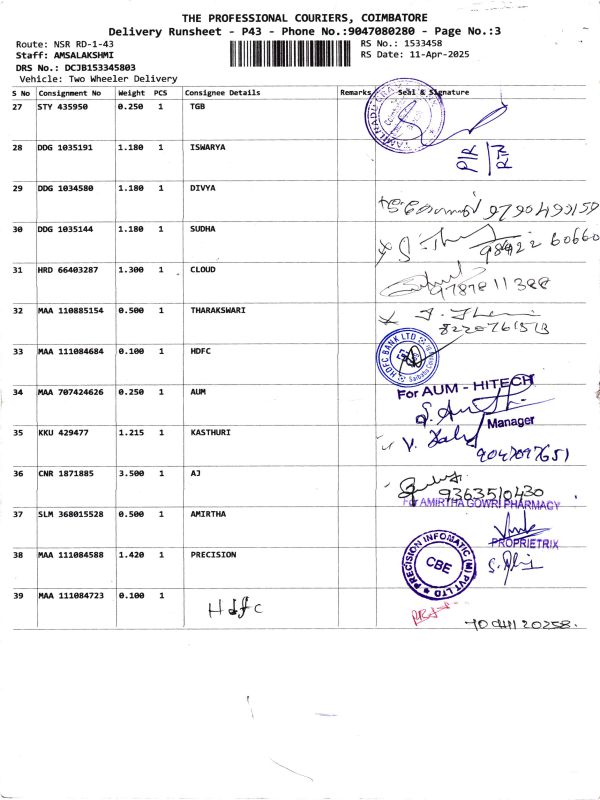 THE PROFESSIONAL COURIERS, COIMBATORE
Delivery Runsheet - P43 - Phone No.:9047080280 - Page No.:3
Route: NSR RD-1-43 RS No.: 1533458
Staff: AMSALAKSHMI RS Date: 11-Apr-2025
DRS No.: DCJB153345803
Vehicle: Two Wheeler Delivery
S No Consignment No Weight PCS Consignee Details Remarks Seal & Signature
27 STY 435950 0.250 1 TGB
28 DDG 1035191 1.180 1 ISWARYA
29 DDG 1034580 1.180 1 DIVYA
30 DDG 1035144 1.180 1 SUDHA
98422 60660
31 HRD 66403287 1.300 1 CLOUD
9787811388
32 MAA 110885154 0.500 1 THARAKSWARI
33 MAA 111084684 0.100 1 HDFC
HDFC BANK LTD
34 MAA 707424626 0.250 1 AUM
For AUM - HITECH
Manager
35 KKU 429477 1.215 1 KASTHURI
9047097651
36 CNR 1871885 3.500 1 AJ
9363510430
37 SLM 368015528 0.500 1 AMIRTHA
For AMIRTHA GOWRI PHARMACY
PROPRIETRIX
38 MAA 111084588 1.420 1 PRECISION
PRECISION INFOMATIC (M) PVT LTD
CBE
39 MAA 111084723 0.100 1 Hdfc